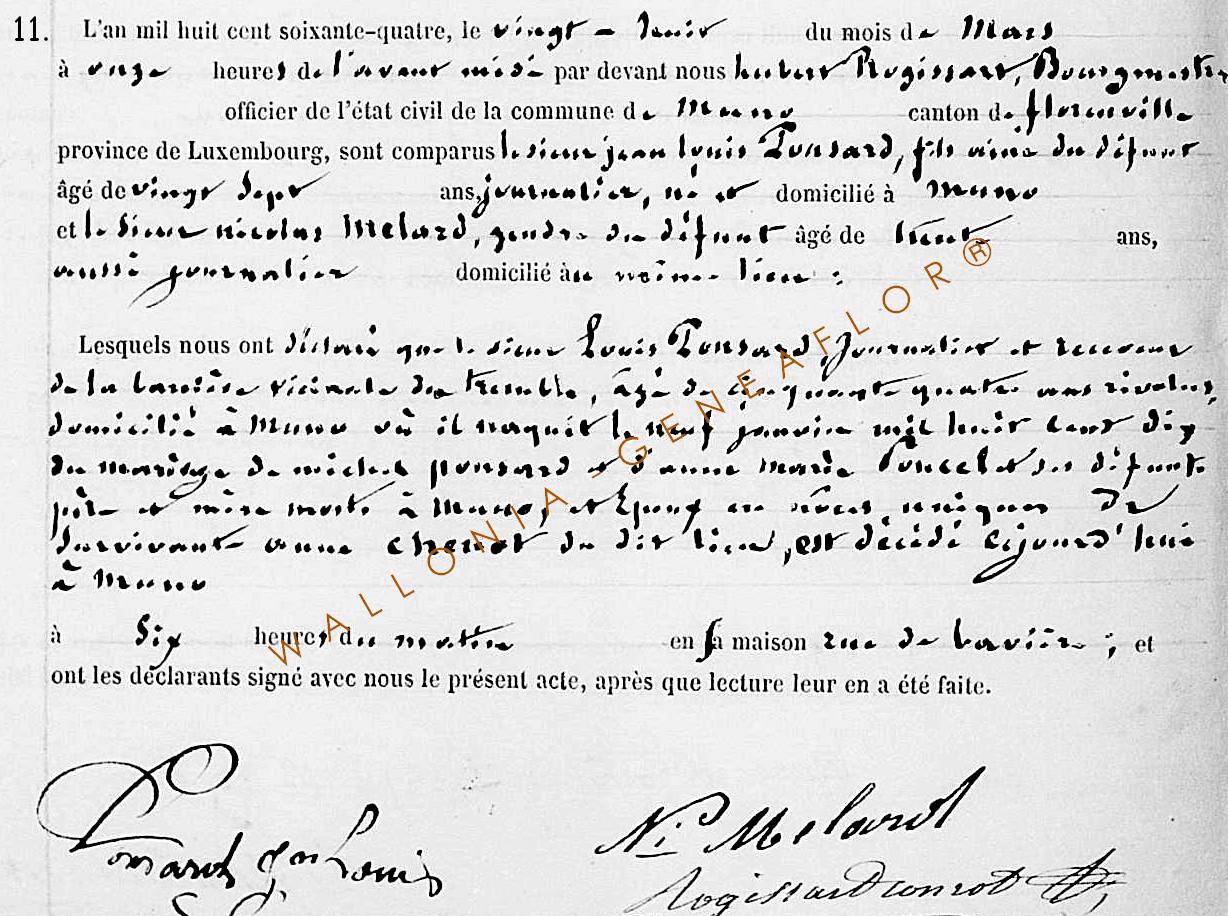 11. L'an mil huit cent soixante-quatre, le vingt-huit du mois de Mars
à onze heures de l'avant midi par devant nous hubert Rogissart, Bourgmestre
officier de l'état civil de la commune de Muno canton de florenville
province de Luxembourg, sont comparus le sieur jean louis Ponsard, fils ainé du défunt
âgé de vingt sept ans, journalier, né et domicilié à Muno
et le sieur nicolas Melard, gendre du défunt âgé de trente ans,
aussi journalier domicilié au même lieu ;
Lesquels nous ont déclaré que le sieur Louis Ponsard, Journalier et receveur
de la barrière vicinale du tremble, âgé de cinquante quatre ans révolus,
domicilié à Muno où il naquit le neuf janvier mil huit cent dix
du mariage de michel ponsard et d'anne marie Poncelet ses défunts
père et mère morts à Muno, et Epoux en nôces uniques de
survivante anne chenot du dit lieu, est décédé cejourd'hui
à Muno
à six heures du matin en sa maison rue de ; et
ont les déclarants signé avec nous le présent acte, après que lecture leur en a été faite.
Ponsard Jean Louis
Ni Melard
Rogissart
WALLONIA - GENEAFLOR®